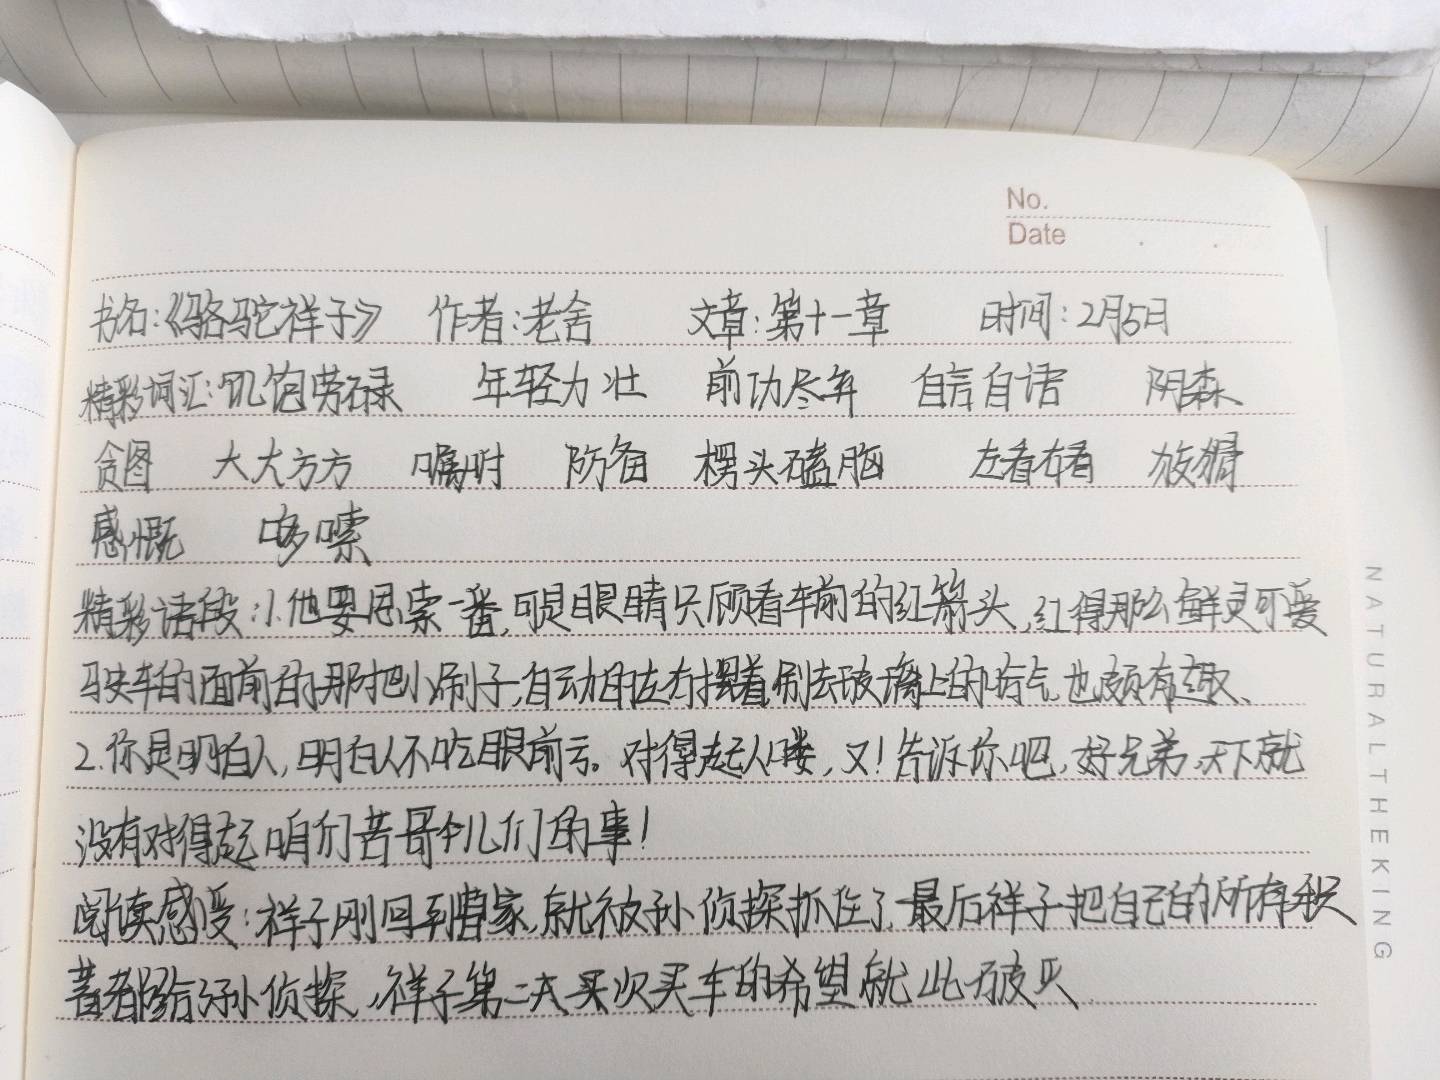 No.
Date
书名:《骆驼祥子》 作者:老舍 文章:第十一章 时间:2月5日
精彩词汇:饥饱劳碌 年轻力壮 前功尽弃 自言自语 阴森
贪图 大大方方 嘱咐 防备 楞头磕脑 左看右看 放猾
感慨 哆嗦
精彩语段:1.他要思索一番,可是眼睛只顾看车前的红箭头,红得那么鲜灵可爱
驶车的面前的那把小刷子,自动的左右摆着,刷去玻璃上的哈气,也颇有趣、
2.你是明白人,明白人不吃眼前亏。对得起人喽,又!告诉你吧,好兄弟,天下就
没有对得起咱们苦哥们儿们的事!
阅读感受:祥子刚回到曹家,就被孙侦探抓住了,最后祥子把自己的所有积
蓄都给了孙侦探,祥子第二次买车的希望就此破灭
NATURALTHEKING